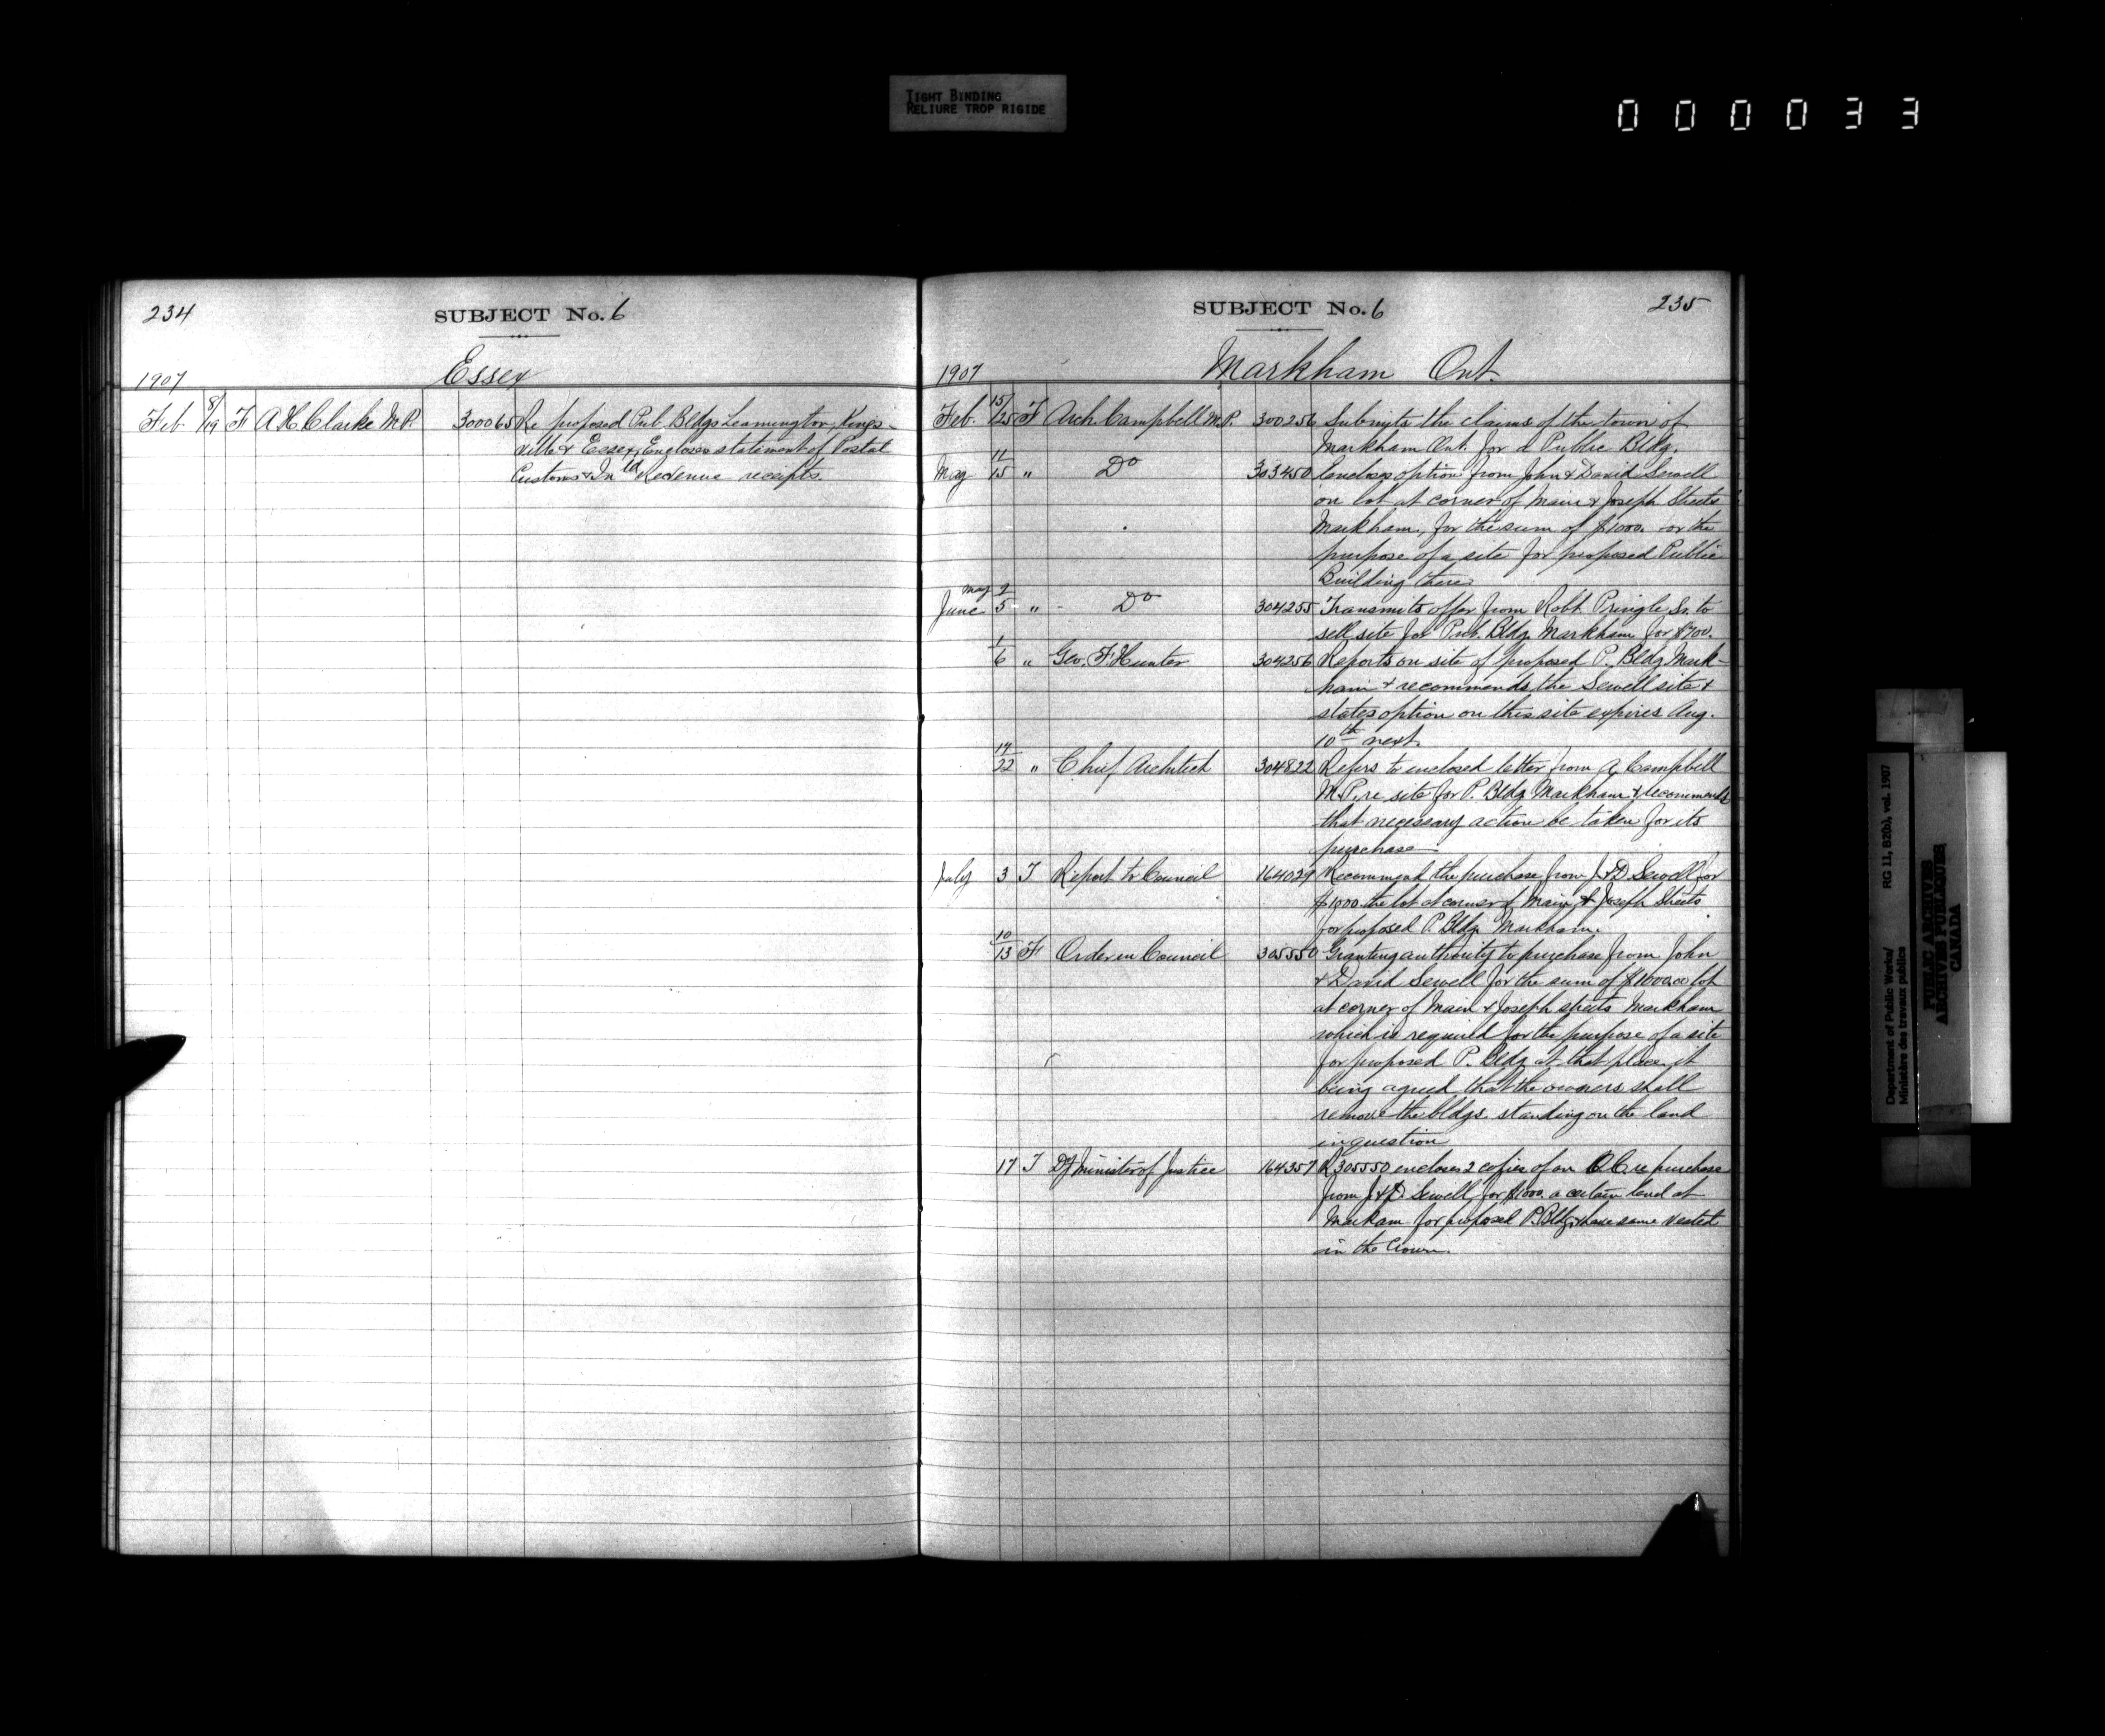 TIGHT BINDING
RELIURE TROP RIGIDE
000033
234
SUBJECT No. 6
1907
Essex
Feb 8/19 F A H Clarke M.P. 300065 Re proposed Pub. Bldgs Leamington, Kings-
ville & Essex, Encloses statement of Postal
Customs & Inld Revenue receipts.
SUBJECT No. 6
235
1907
Markham Ont.
Feb. 15/25 F Arch Campbell M.P. 300256 Submits the claims of the town of
Markham Ont. for a Public Bldg.
May 11/15 " Do 303450 Encloses option from John & David Sewell
on lot at corner of Main & Joseph Streets
Markham, for the sum of $1000. or the
purpose of a site for proposed Public
Building there.
May 9
June 5 " - Do 304255 Transmits offer from Robt Pringle Sr. to
sell site for Pub. Bldg. Markham for $700.
1/6 " Geo. F. Hunter 304256 Reports on site of proposed P. Bldg Mark-
ham & recommends the Sewell site &
states option on this site expires Aug.
10th next.
19/22 " Chief Architect 304822 Refers to enclosed letter from A. Campbell
M.P. re site for P. Bldg Markham & recommends
that necessary action be taken for its
purchase
July 3 T Report to Council 164029 Recommend the purchase from J & D Sewell for
$1000 the lot at corner of Main & Joseph Streets
for proposed P. Bldg. Markham.
10/13 F Order in Council 305550 Granting authority to purchase from John
& David Sewell for the sum of $1000.00 lot
at corner of Main & Joseph streets Markham
which is required for the purpose of a site
for proposed P. Bldg at that place, it
being agreed that the owners shall
remove the bldgs. standing on the land
in question
17 T Dy Minister of Justice 164357 R 305550 encloses 2 copies of an O.C. re purchase
from J & D. Sewell, for $1000. a certain land at
Markam for proposed P. Bldg & have same vested
in the Crown.
Department of Public Works/
Ministère des travaux publics
RG 11, B2(b), vol. 1907
PUBLIC ARCHIVES
ARCHIVES PUBLIQUES
CANADA